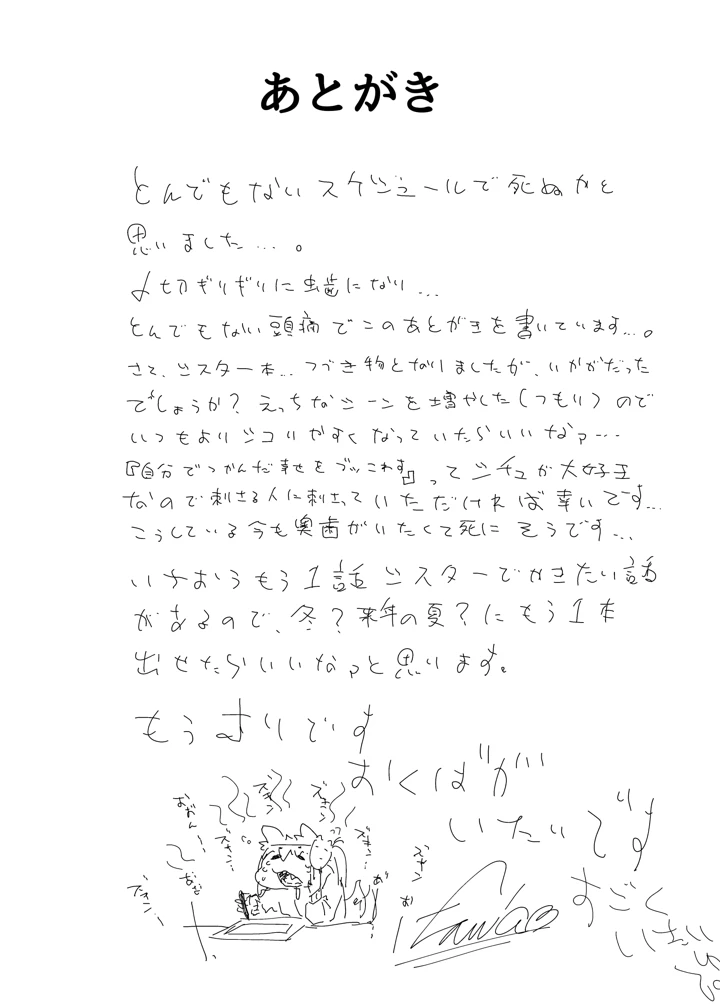 あとがき
とんでもないスケジュールで死ぬかと
思いました…。
〆切ぎりぎりに虫歯になり…
とんでもない頭痛でこのあとがきを書いています…。
さて、シスター本…つづき物となりましたが、いかがだった
でしょうか？えっちなシーンを増やした(つもり)ので
いつもよりシコりやすくなっていたらいいなァ…
『自分でつかんだ幸せをブッこわす』ってシチュが大好王
なので刺さる人に刺さっていただければ幸いです…
こうしている今も奥歯がいたくて死にそうです…
いちおうもう1話シスターでかきたい話
があるので、冬？来年の夏？にもう1本
出せたらいいなァと思います。
もうむりです
おくばが
いたいです
すごく
いたい
ズキン
ズキン…
ズキン
ズキン…
ズキン…
ズキン
おおん…